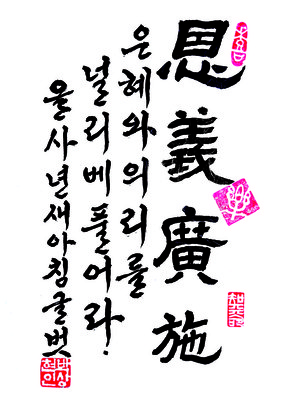 恩義廣施
은혜와 의리를
널리 베풀어라!
을사년 새아침 글벗